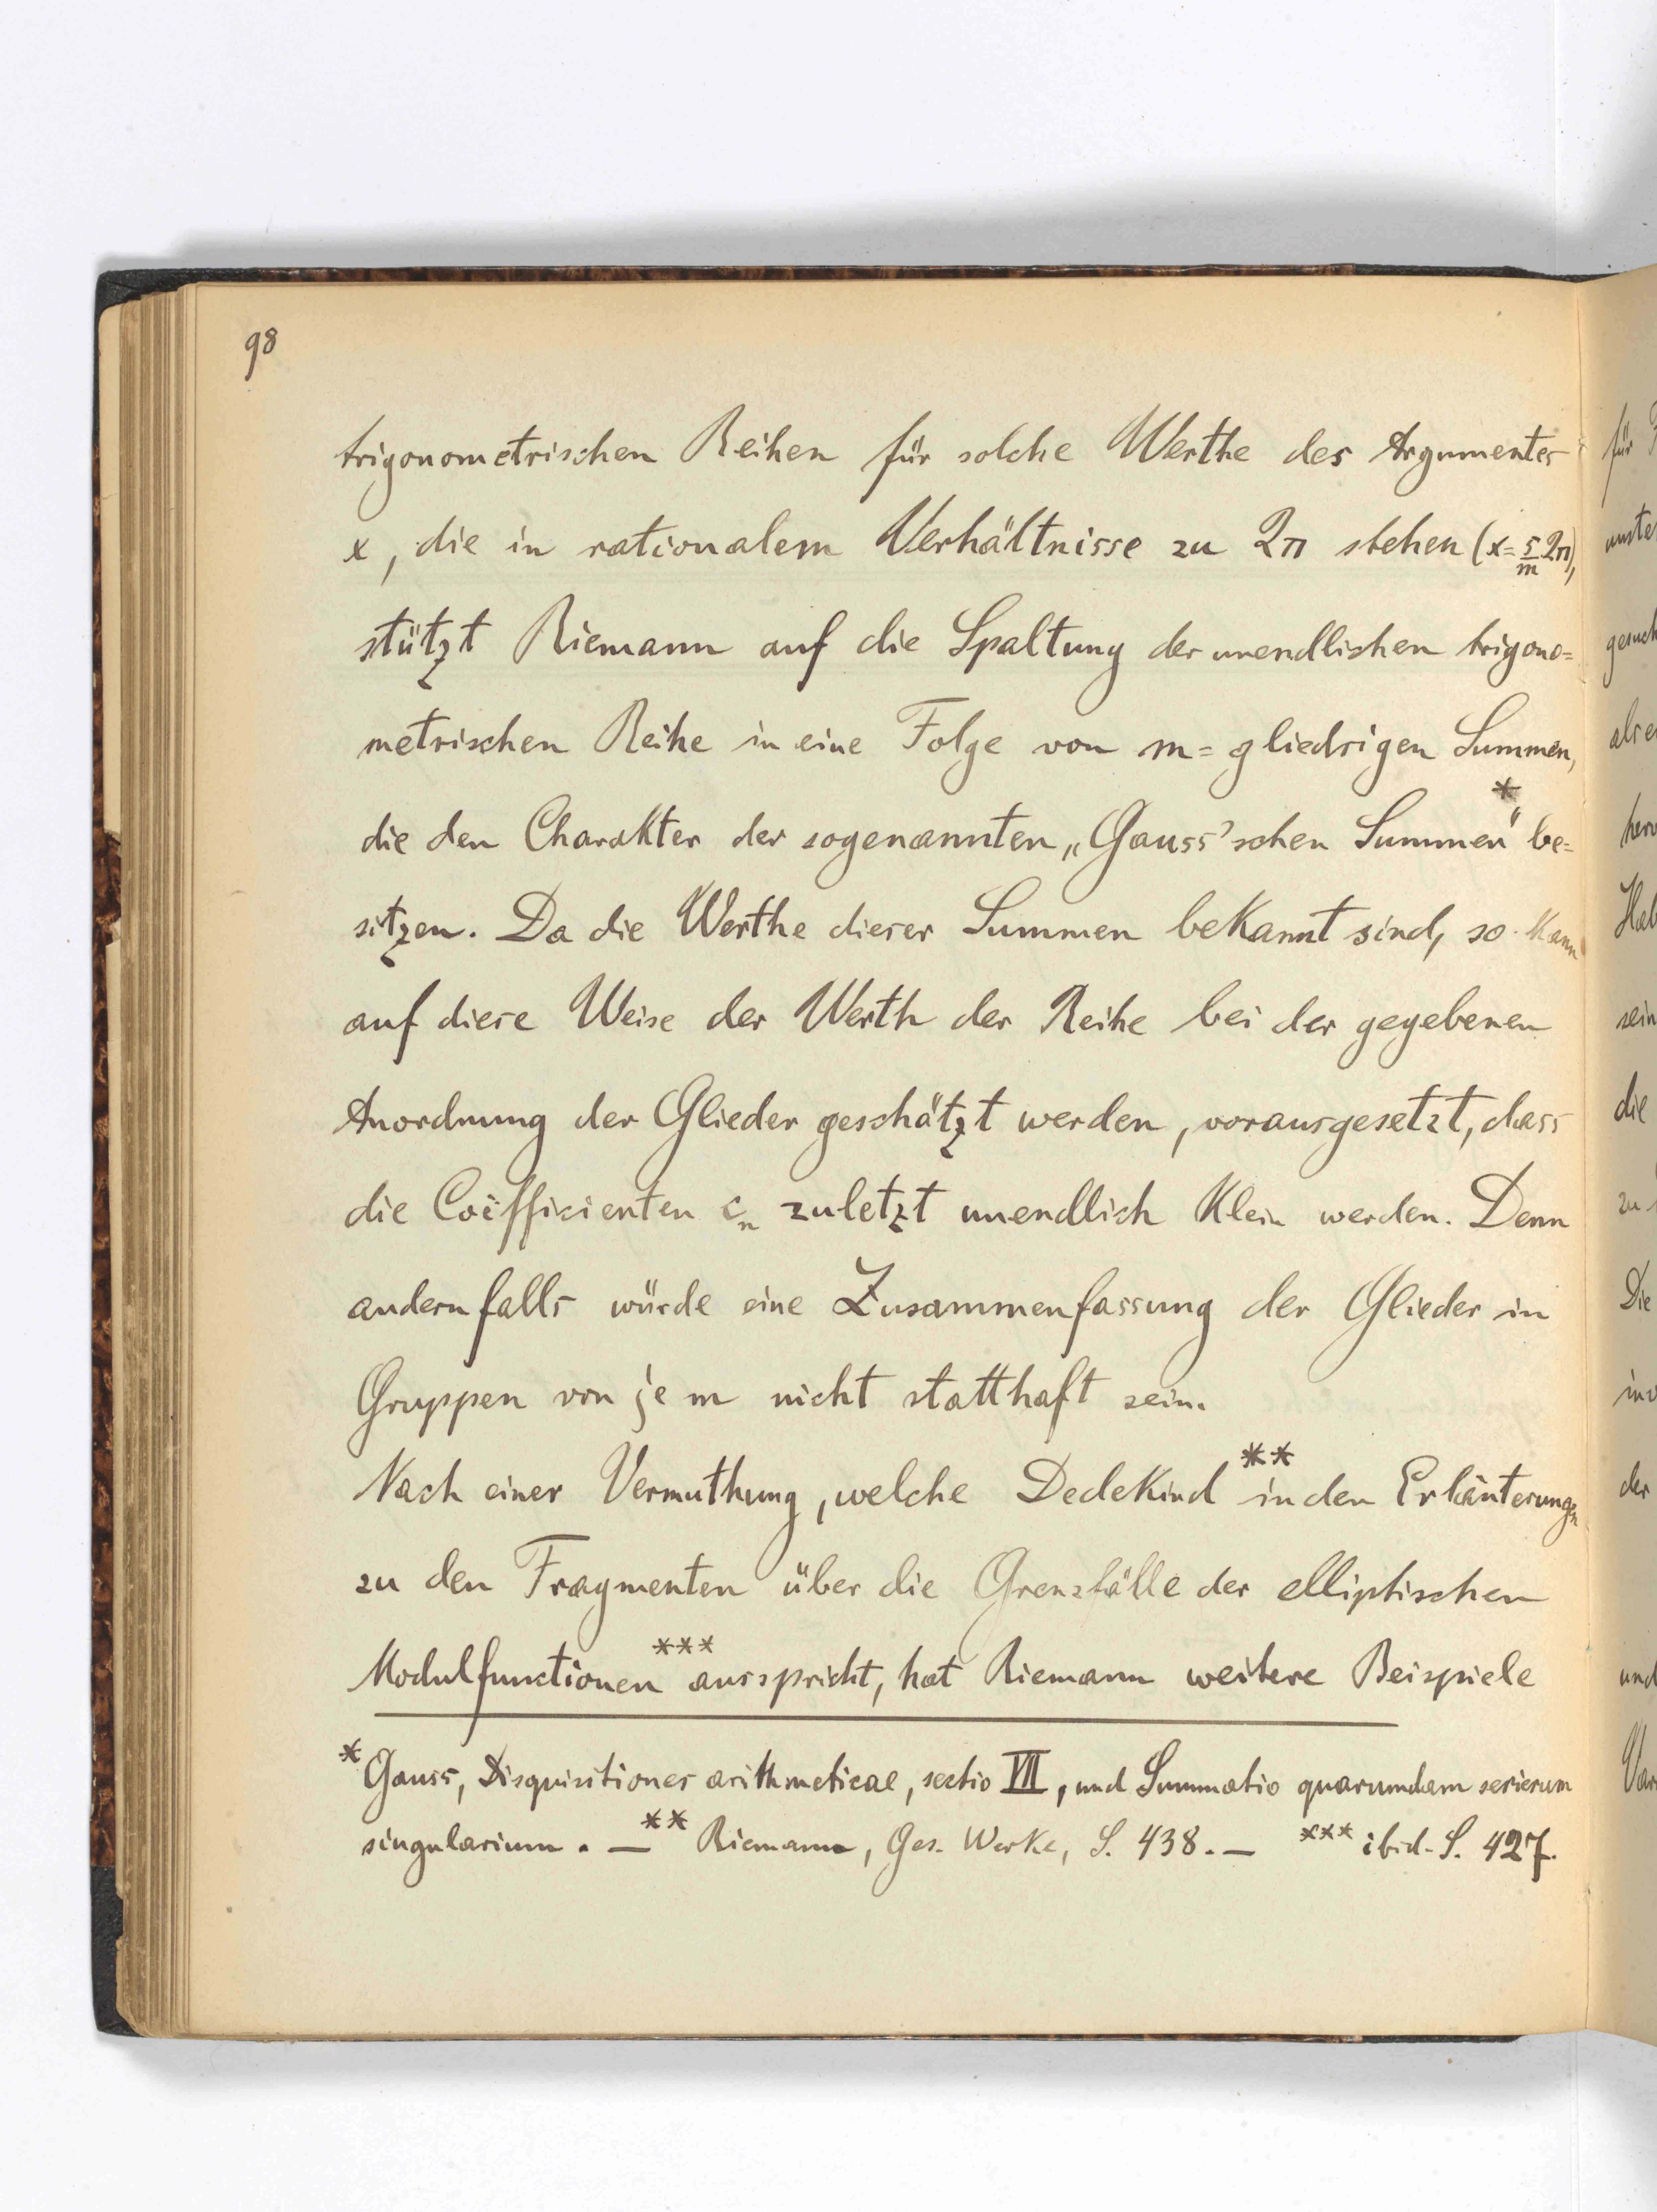 98
trigonometrischen Reihen für solche Werthe des Argumentes
x, die in rationalem Verhältnisse zu 2π stehen (x = s/m 2π),
stützt Riemann auf die Spaltung der unendlichen trigono=
metrischen Reihe in eine Folge von m=gliedrigen Summen,
die den Charakter der sogenannten „Gauss'schen Summen"* be=
sitzen. Da die Werthe dieser Summen bekannt sind, so kann
auf diese Weise der Werth der Reihe bei der gegebenen
Anordnung der Glieder geschätzt werden, vorausgesetzt, dass
die Coëffizienten cₙ zuletzt unendlich klein werden. Denn
andernfalls würde eine Zusammenfassung der Glieder in
Gruppen von je m nicht statthaft sein.
Nach einer Vermuthung, welche Dedekind** in den Erläuterungen
zu den Fragmenten über die Grenzfälle der elliptischen
Modulfunctionen*** ausspricht, hat Riemann weitere Beispiele
* Gauss, Disquisitiones arithmeticae, sectio VII, und Summatio quarumdam serierum
singularium. — ** Riemann, Ges. Werke, S. 438. — *** ibid. S. 427.